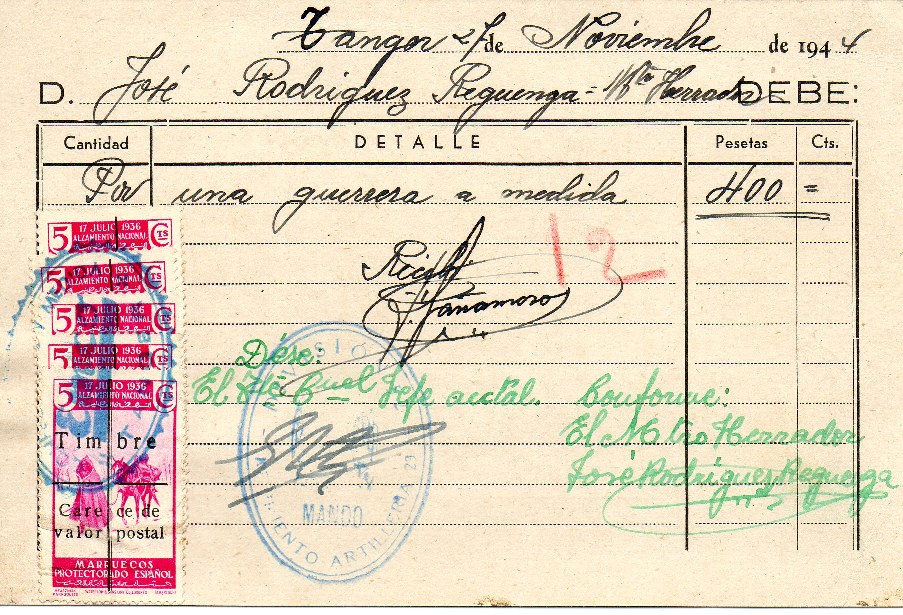 Tanger 27 de Noviembre de 1944
D. José Rodriguez Reguenga = Mtro Herrador DEBE:
Cantidad DETALLE Pesetas Cts.
Por una guerrera a medida 400 =
12
Recibí
Dése:
El Tte Cnel Jefe acctal.
Conforme:
El Mtro Herrador
José Rodriguez Reguenga
5 17 JULIO 1936 CTS
ALZAMIENTO NACIONAL
5 17 JULIO 1936 CTS
ALZAMIENTO NACIONAL
5 17 JULIO 1936 CTS
ALZAMIENTO NACIONAL
5 17 JULIO 1936 CTS
ALZAMIENTO NACIONAL
5 17 JULIO 1936 CTS
ALZAMIENTO NACIONAL
Timbre
Carece de
valor postal
MARRUECOS
PROTECTORADO ESPAÑOL
DIVISIÓN
MANDO
ARTILLERIA 21